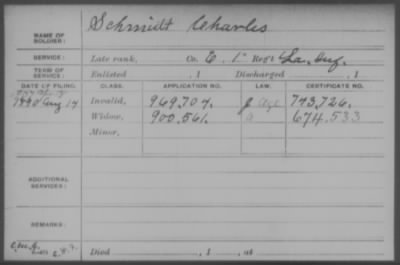 Schmidt Charles
NAME OF SOLDIER:
SERVICE: Late rank, Co. E. 1" Reg't La. Inf.
TERM OF SERVICE: Enlisted , 1 Discharged , 1
DATE OF FILING. CLASS. APPLICATION NO. LAW. CERTIFICATE NO.
1890 Aug 14 Invalid, 969.707. 743,726.
Widow, 900.561. 674,533
Minor,
ADDITIONAL SERVICES:
REMARKS:
Died , 1 , at